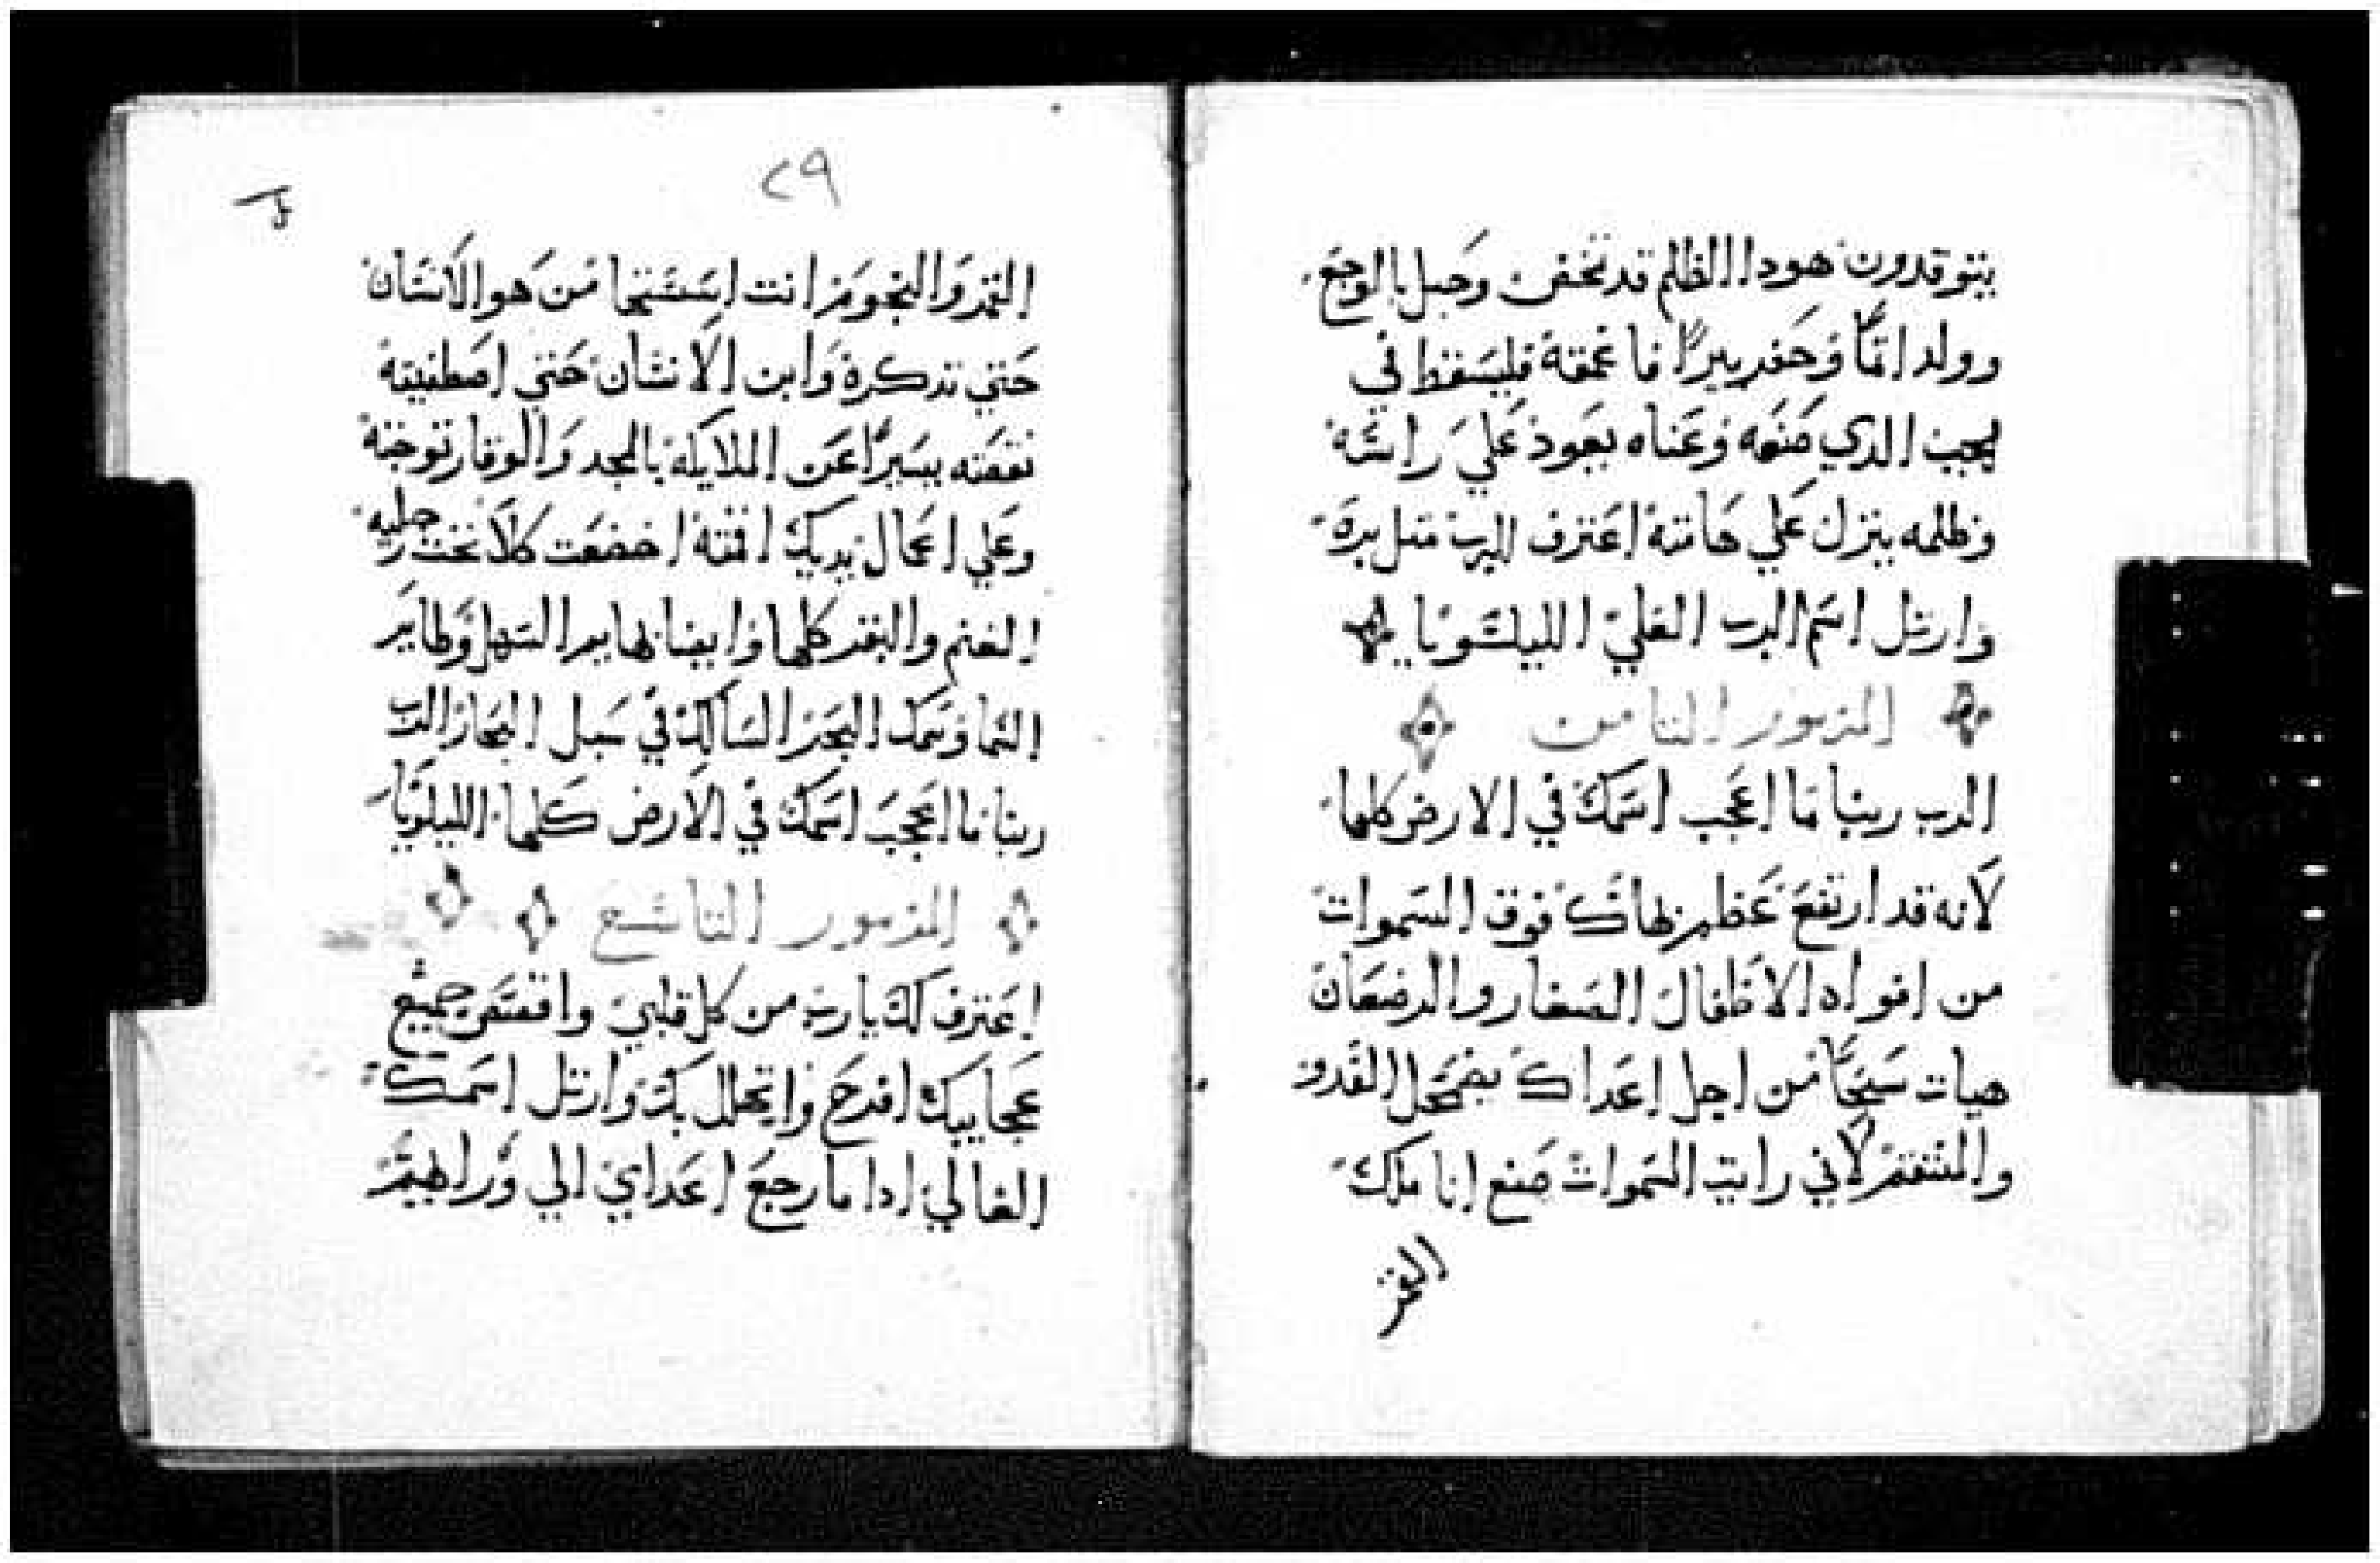 يتوقدون هودا الظلم قد تمخض وحبل بالوجع
وولد اتمًا وحفر بيرًا فاعمقه فليسقط في
الجب الدي صنعه وعناه يعود علي راسه
وظلمه ينزل علي هامته اعترف للرب متل بره
وارتل اسم الرب العلي الليلسويا
المزمور التامن
الرب ربنا ما اعجب اسمك في الارض كلها
لانه قد ارتفع عظم بهاك فوق السموات
من افواه الاطفال الصغار والرضعان
هيات سبحًا من اجل اعداك يضمحل العدو
والمنتقم لاني رايت السموات صنع انا ملك
القمر
٢٩
القمر والنجوم انت اسستها من هو الانسان
حتي تدكره وابن الانسان حتي اصطفيته
نقصته يسيرًا عن الملايكه بالمجد والوقار توجته
وعلي اعمال يديك اقمته اخضعت كلا تحت رجليه
الغنم والبقر كلها وايضا بهايم السهل وطاير
السما وسمك البحر السالك في سبل البحار الرب
ربنا ما اعجب اسمك في الارض كلها الليلويا
المزمور التاسع
اعترف لك يارب من كل قلبي واقتص جميع
عجايبك افرح واتهلل بك وارتل اسمك
العالي ادا ما رجع اعداي الي وراهم